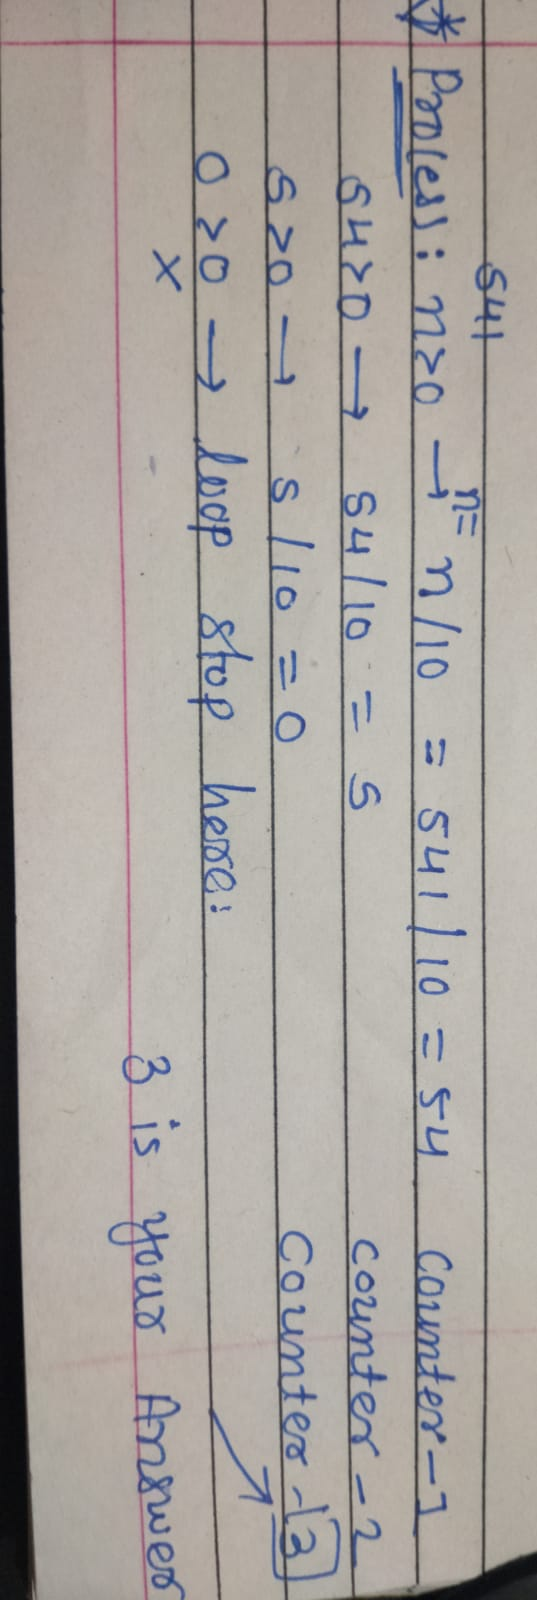 541
* Process: n>0 → n= n/10 = 541/10 = 54 Counter-1
54>0 → 54/10 = 5 counter-2
5>0 → 5/10 = 0 Counter-3
0>0 → loop stop here:
x
3 is your Answer